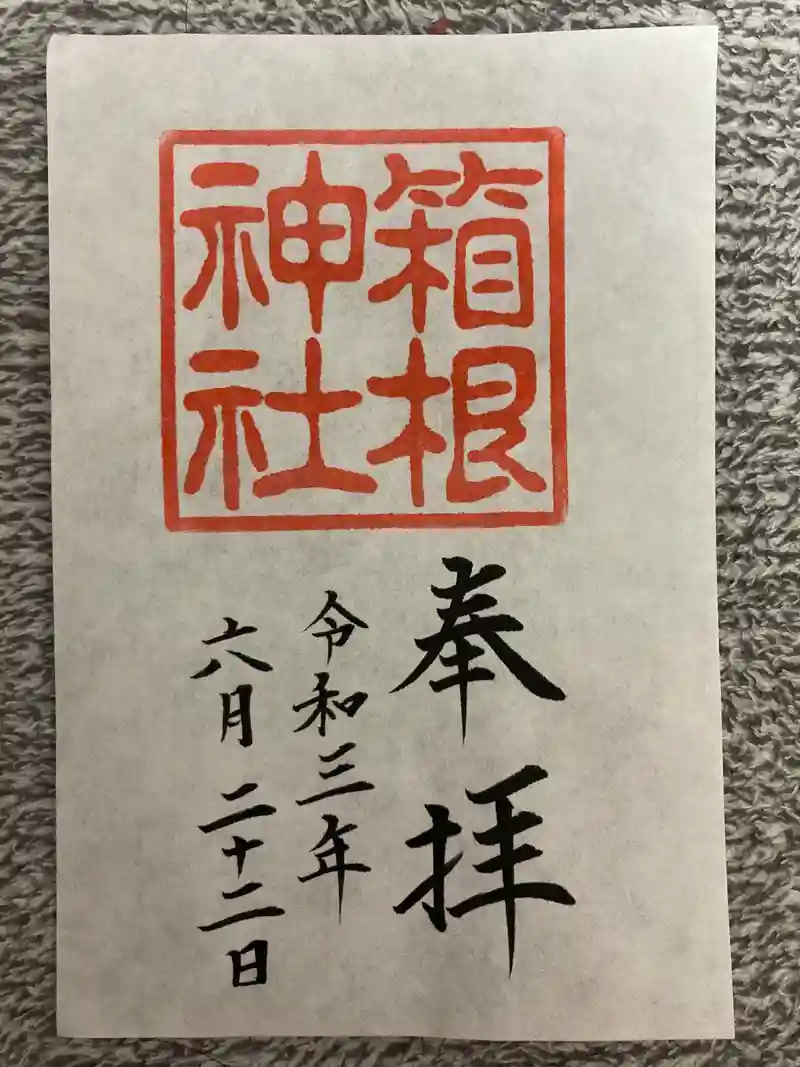 箱根
神社
奉拝
令和三年
六月二十二日